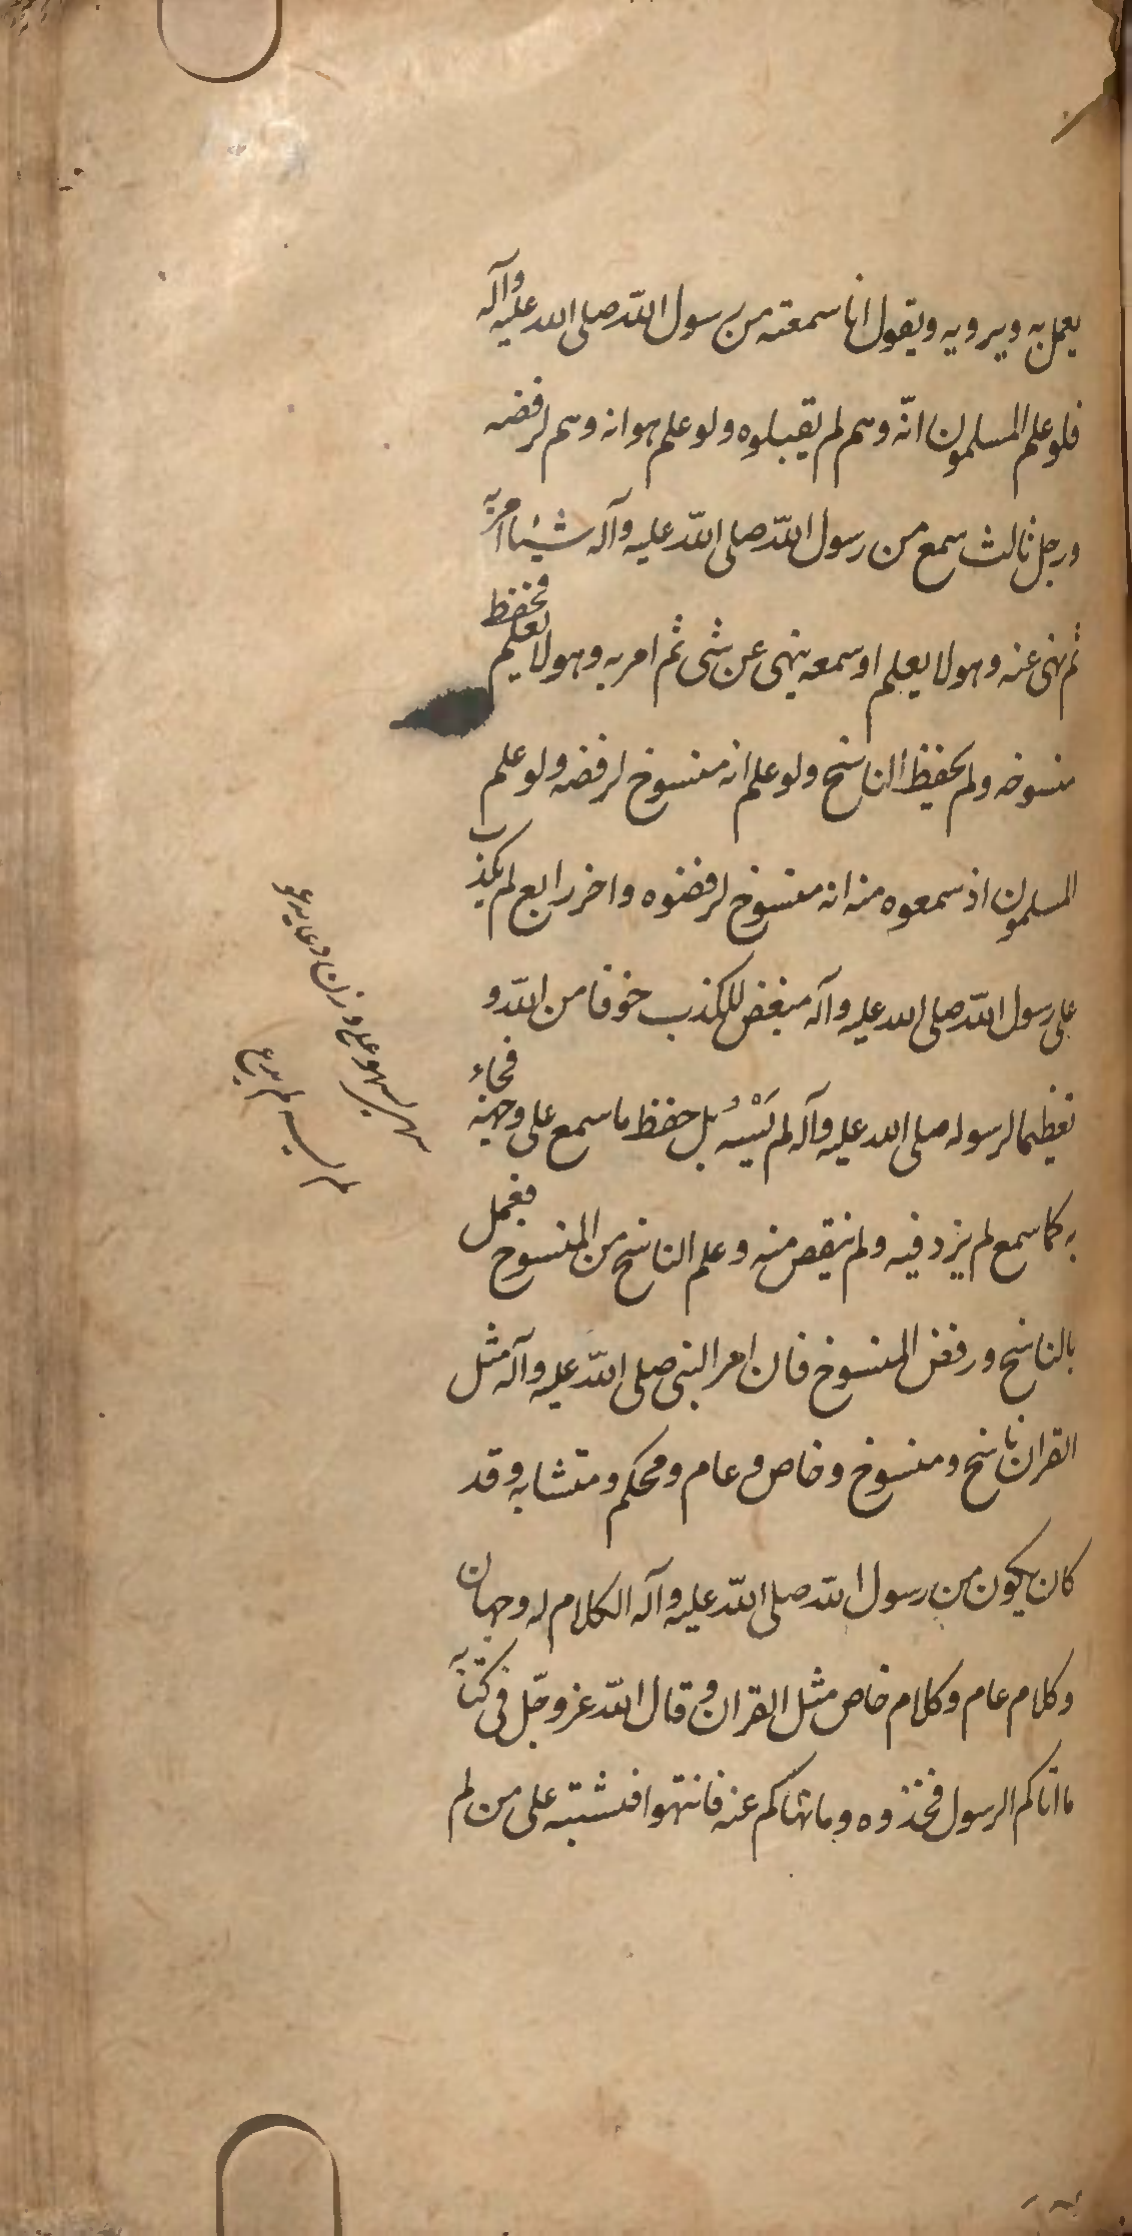 يعمل به ويرويه ويقول انا سمعته من رسول الله صلى الله عليه وآله
فلو علم المسلمون انّه وهم لم يقبلوه ولو علم هو انه وهم لرفضه
ورجل ثالث سمع من رسول الله صلى الله عليه وآله شيئا امر به
ثم نهى عنه وهو لا يعلم او سمعه ينهى عن شى ثم امر به وهو لا يعلم فحفظ
منسوخه ولم يحفظ الناسخ ولو علم انه منسوخ لرفضه ولو علم
المسلمون اذ سمعوه منه انه منسوخ لرفضوه واخر رابع لم يكذب
على رسول الله صلى الله عليه وآله مبغض للكذب خوفا من الله و
تعظيما لرسوله صلى الله عليه وآله لم يَسْهُ بل حفظ ما سمع على وجهه فجاء
به كما سمع لم يزد فيه ولم ينقص منه وعلم الناسخ من المنسوخ فعمل
بالناسخ ورفض المنسوخ فان امر النبى صلى الله عليه وآله مثل
القران ناسخ ومنسوخ وخاص وعام ومحكم ومتشابه وقد
كان يكون من رسول الله صلى الله عليه وآله الكلام له وجهان
وكلام عام وكلام خاص مثل القران وقال الله عز وجّل فى كتابه
ما اتاكم الرسول فخذوه وما نهاكم عنه فانتهوا فيشتبه على من لم